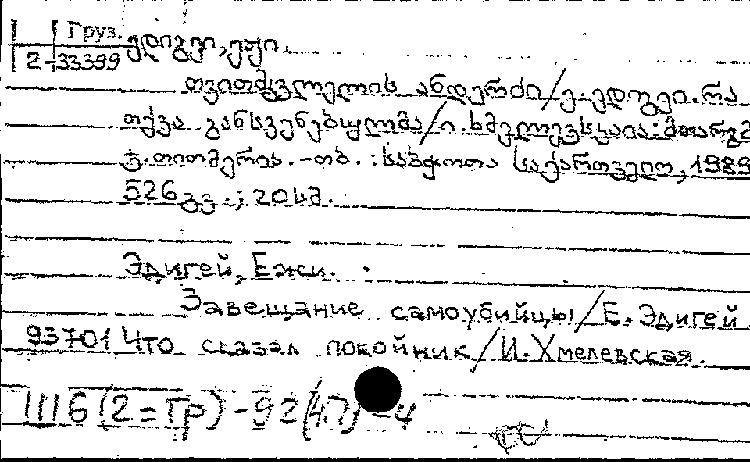 Груз.
2-33399
ედიგეი, ეჟი.
თვითმკვლელის ანდერძი/ე. ედიგეი. რა
თქვა განსვენებულმა/ი. ხმელევსკაია: მთარგმ.
თ.-თბ.: საბჭოთა საქართველო, 1989
526გვ.; 20სმ.
Эдигей, Ежи.
Завещание самоубийцы/Е. Эдигей
93701 Что сказал покойник/И. Хмелевская.
1116(2=Гр)-92(4П)-4